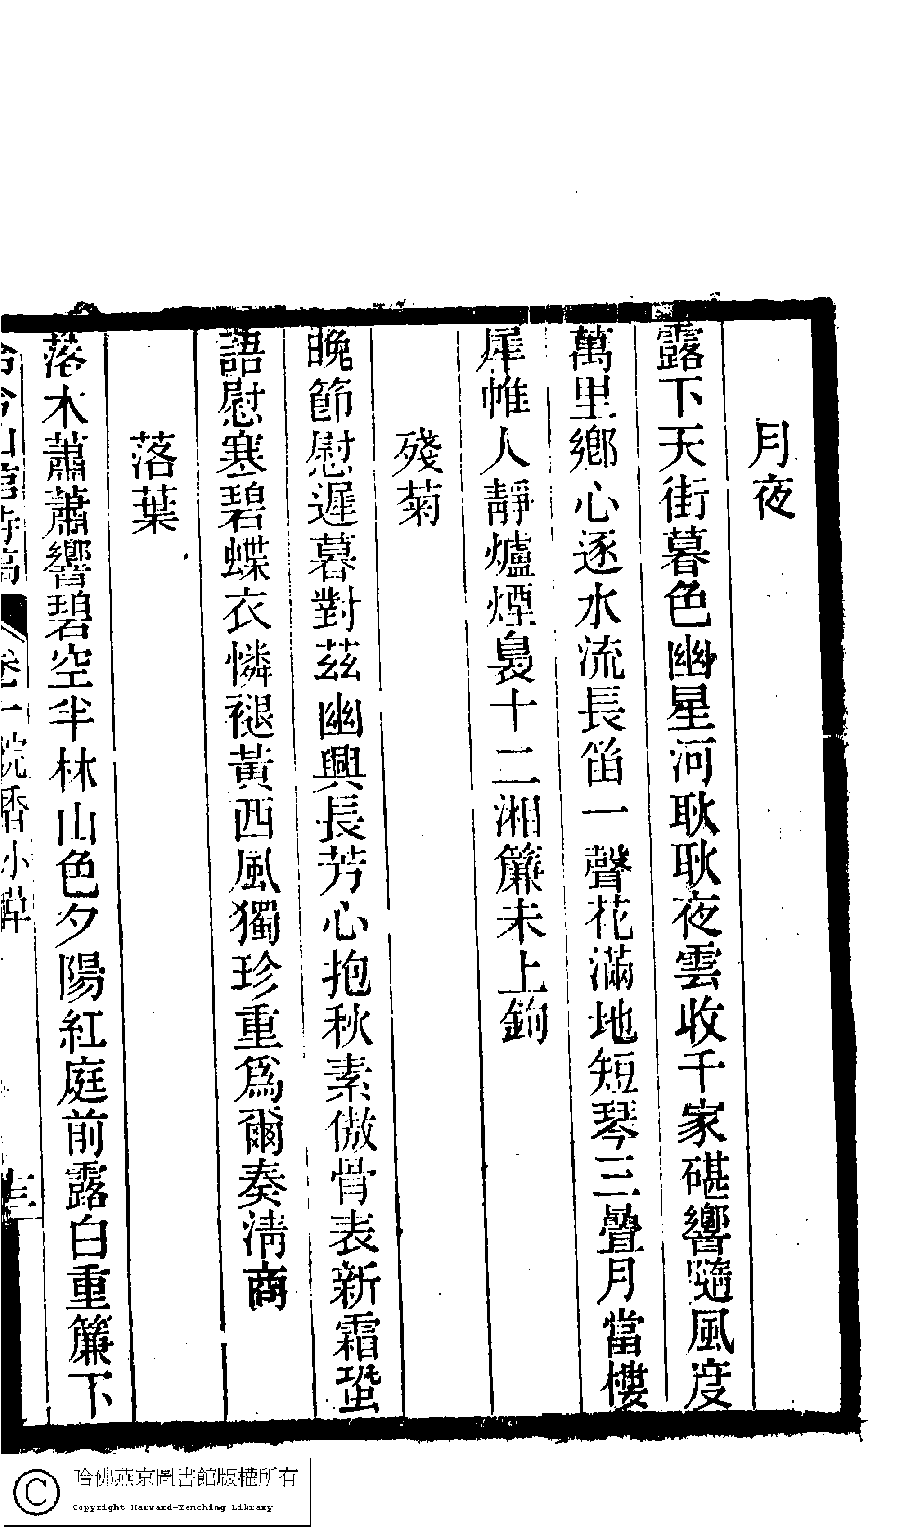 月夜
露下天街暮色幽星河耿耿夜雲收千家碪響隨風度
萬里鄉心逐水流長笛一聲花滿地短琴三疊月當樓
犀帷人靜爐煙裊十二湘簾未上鉤
殘菊
晚節慰遲暮對茲幽興長芳心抱秋素傲骨表新霜蛩
語慰寒碧蝶衣憐褪黃西風獨珍重爲爾奏淸商
落葉
落木蕭蕭響碧空半林山色夕陽紅庭前露白重簾下
山館詩稿 卷一 小草 三
哈佛燕京圖書館版權所有
Copyright Harvard-Yenching Library